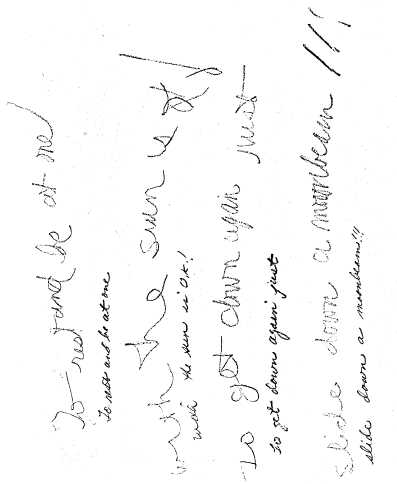 To rest and be at one
To rest and be at one
with the sun is ok!
with the sun is O.K.!
to get down again just
to get down again just
slide down a moonbeam!!!
slide down a moonbeam!!!